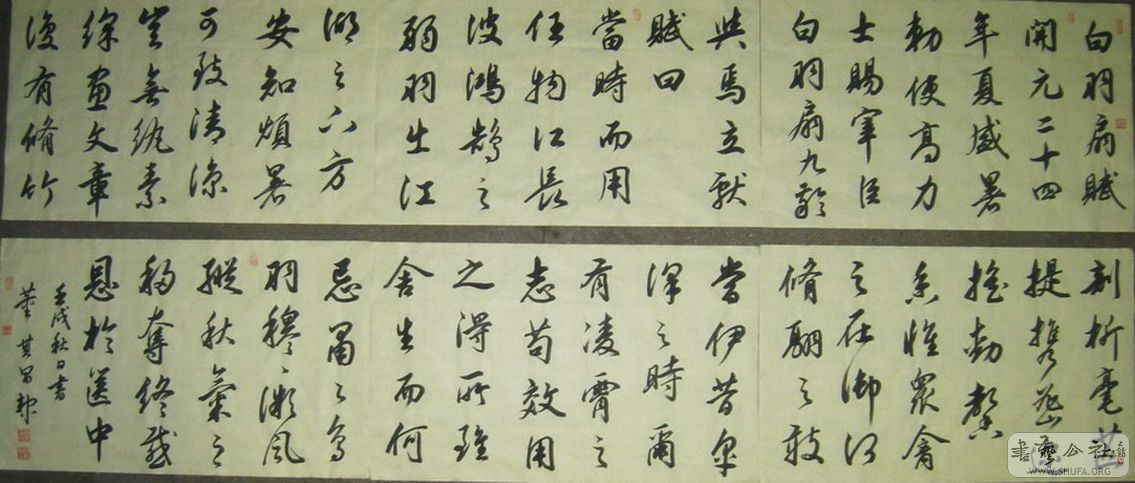 白羽扇賦
開元二十四
年夏盛暑
勅使高力
士賜宰臣
白羽扇九齡
與焉立獻
賦曰
當時而用
任物所長
彼鴻鵠之
弱羽出江
湖之下方
安知煩暑
可致清涼
豈無紈素
綵畫文章
復有脩竹
剖析毫芒
提攜密
搖動馨
香惟眾禽
之在御何
脩翮之敢
當伊昔皋
澤之時爾
有凌霄之
志苟效用
之得所雖
舍生而何
忌肅之白
羽穆穆微風
縱秋氣之
移奪終感
恩於篋中
壬戌秋日書
董其昌
書藝公社
WWW.SHUFA.ORG